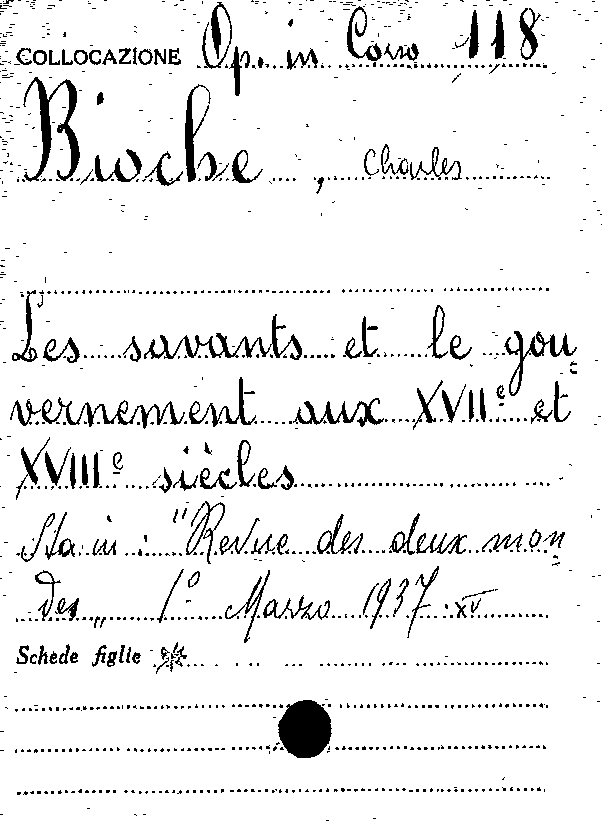 COLLOCAZIONE Op. in Corso 118
Bioche, Charles
Les savants et le gou=
vernement aux XVIIe et
XVIIIe siècles
Sta in : "Revue des deux mon=
des„ 1° Marzo 1937. XV
Schede figlie